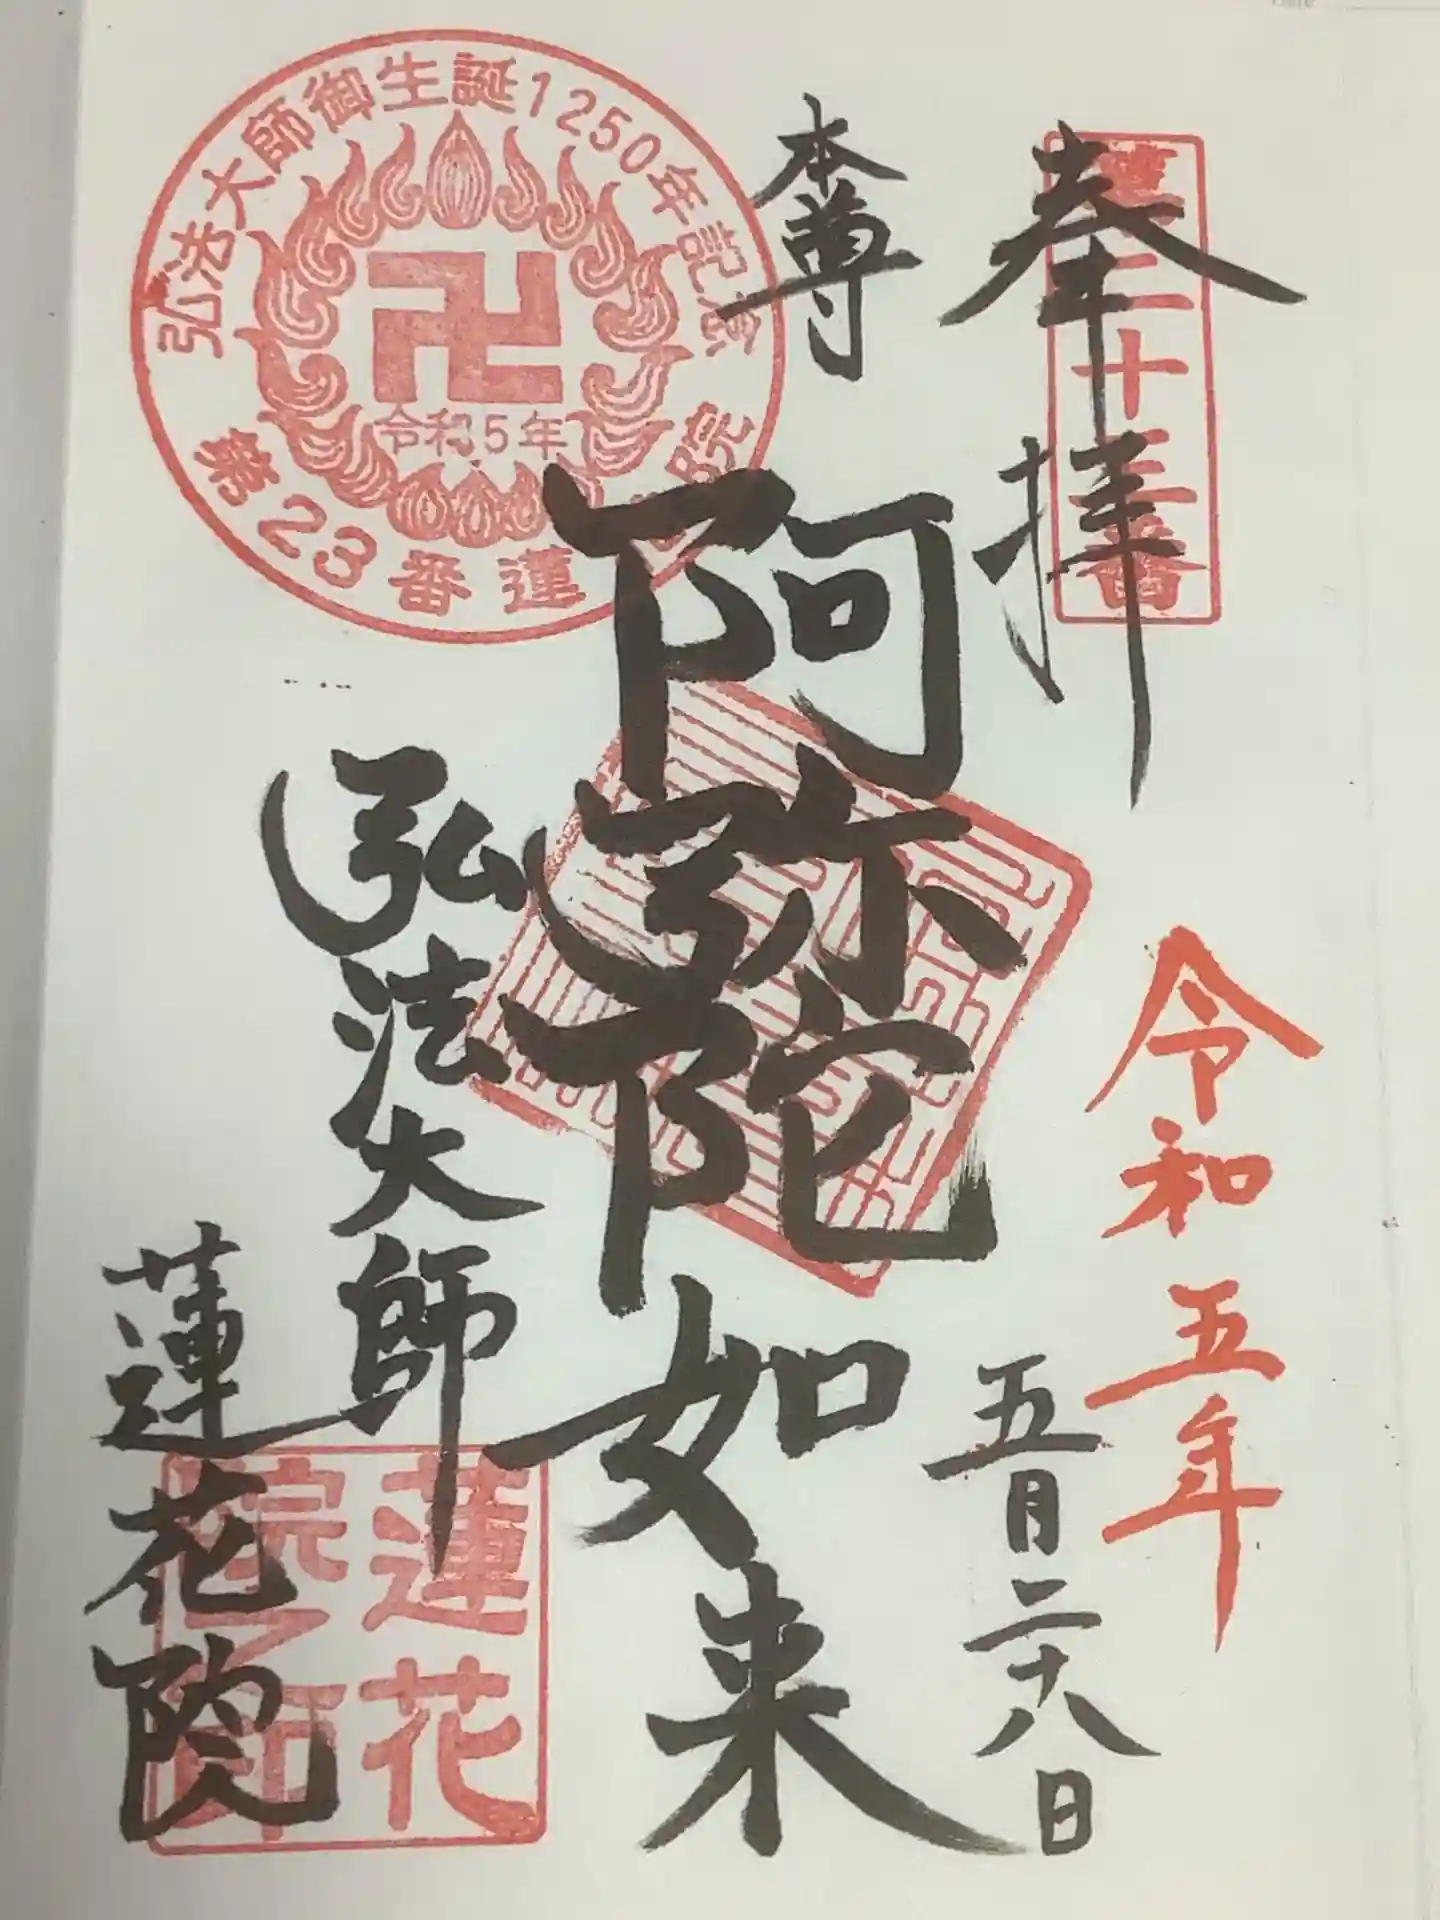 奉拝
第二十三番
令和五年
五月二十八日
本尊
阿弥陀如来
弘法大師
蓮花院
弘法大師御生誕1250年記念
令和5年
第23番蓮花院
蓮花
院之印